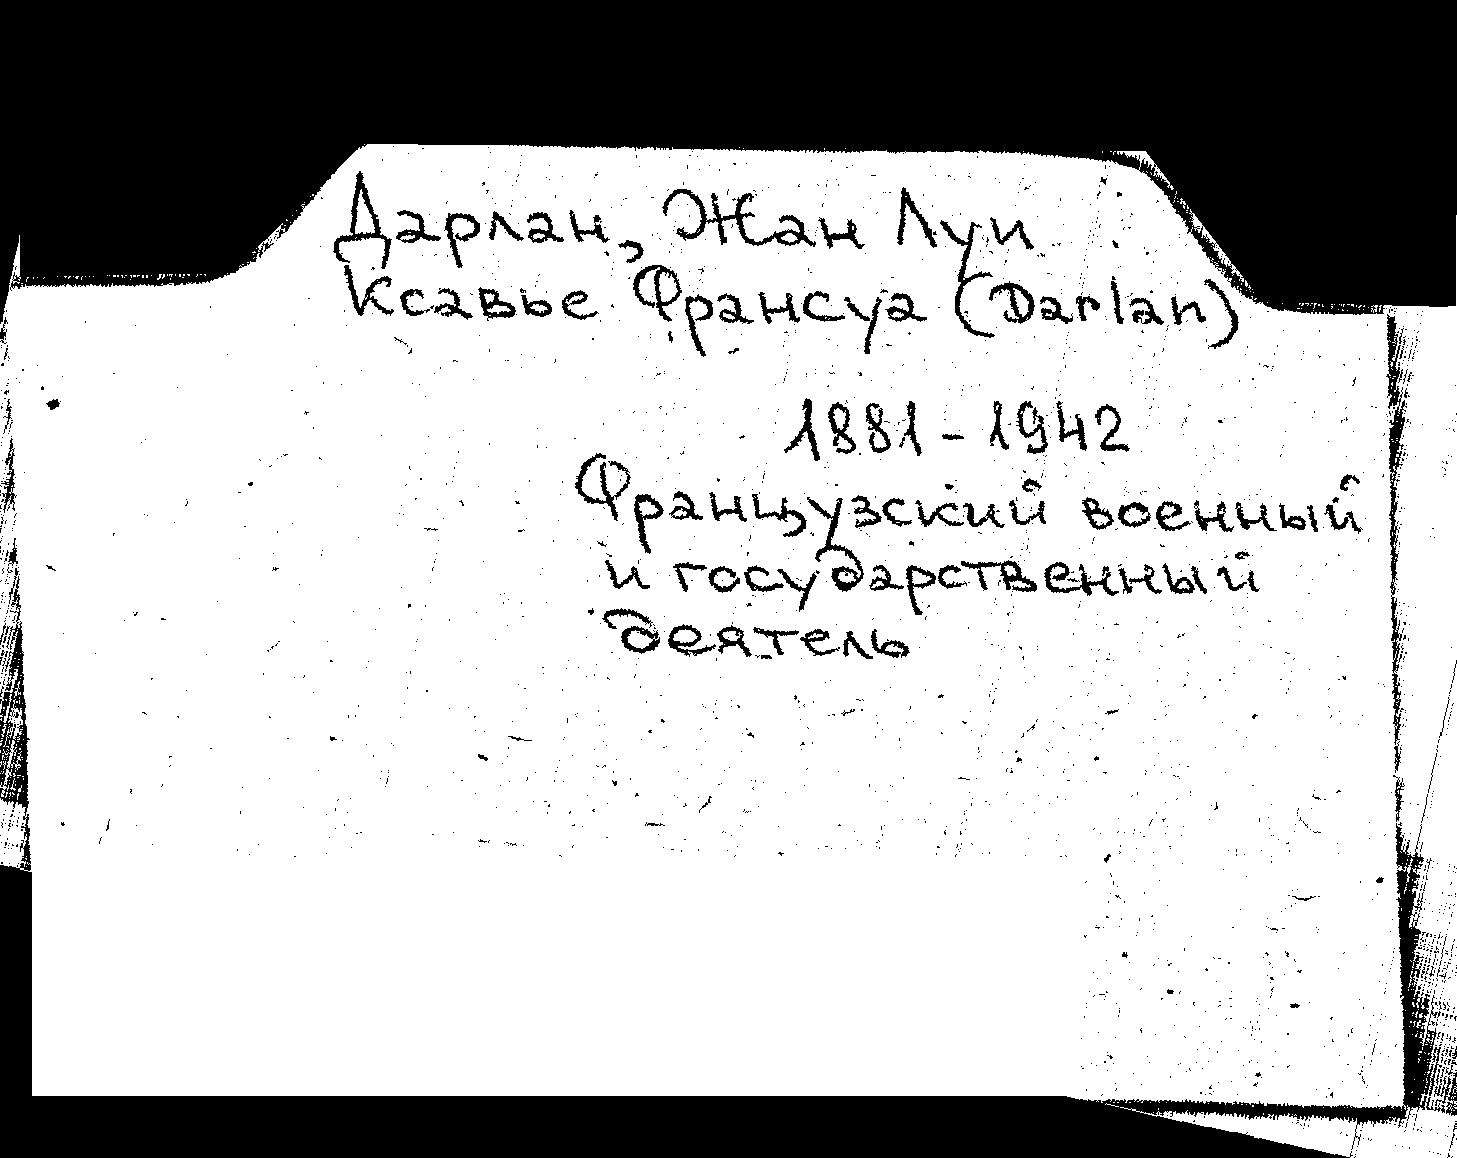 Дарлан, Жан Луи
Ксавье Франсуа (Darlan)
1881-1942
Французский военный
и государственный
деятель